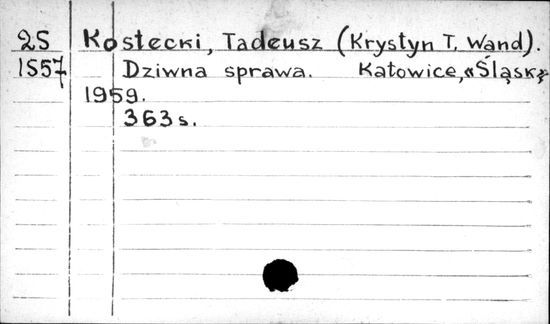 25 Kostecki, Tadeusz (Krystyn T. Wand).
1557 Dziwna sprawa. Katowice, «Śląsk»
1959.
363 s.